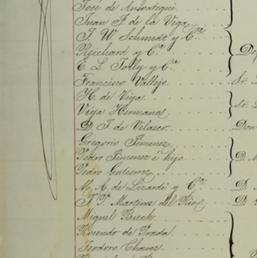 Jose de Ansoategui
Juan J. de la Vega
J. W. Schmidt y Cª
Reichard y Cª
E. L. Tolly y Cª
Francisco Vallejo
H. de Viya
Viya Hermanos
D. J. de Velasco Don
Gregorio Jimenez
Pedro Jimenez é hijo
Pedro Gutierrez
M. A. de Lizardi y Cª D.
J. P. Martinez del Rio D.
Miguel Buch
Facundo de
Teodoro Chavez